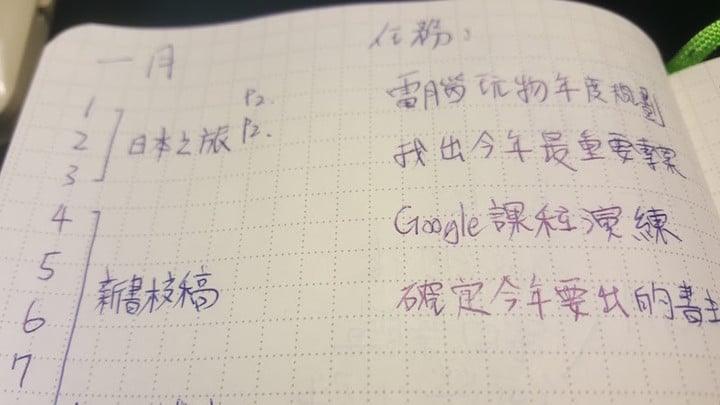 一月
1 P2.
2 日本之旅 P2.
3
4
5
6 新書校稿
7
任務:
電腦玩物年度規劃
找出今年最重要專案
Google 課程演練
確定今年要出的書